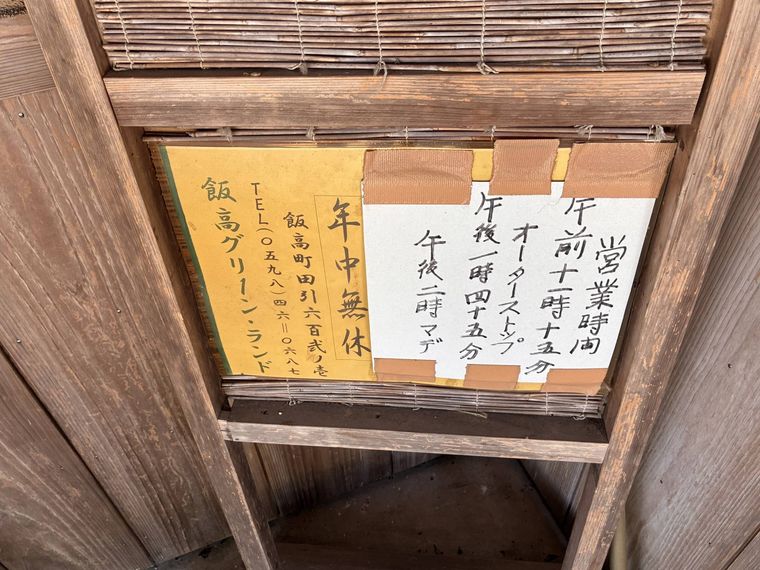 営業時間
午前十一時十五分
オーターストップ
午後一時四十五分
午後二時マデ
年中無休
飯高町田引六百弐ノ壱
TEL(〇五九八)四六=〇六八七
飯高グリーン・ランド